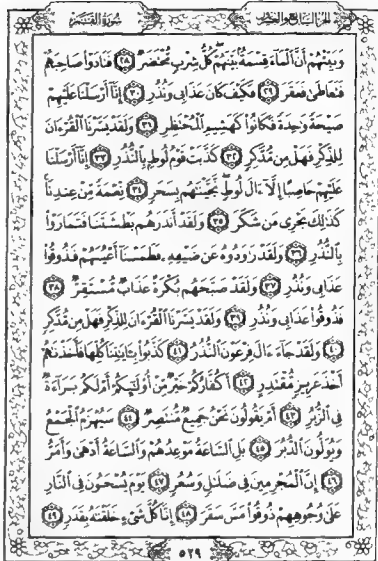 الجزء السابع والعشرون سورة القمر
وَنَبِّئْهُمْ أَنَّ ٱلْمَآءَ قِسْمَةٌۢ بَيْنَهُمْ كُلُّ شِرْبٍ مُّحْتَضَرٌ ٢٨ فَنَادَوْا۟ صَاحِبَهُمْ
فَتَعَاطَىٰ فَعَقَرَ ٢٩ فَكَيْفَ كَانَ عَذَابِى وَنُذُرِ ٣٠ إِنَّآ أَرْسَلْنَا عَلَيْهِمْ
صَيْحَةً وَٰحِدَةً فَكَانُوا۟ كَهَشِيمِ ٱلْمُحْتَظِرِ ٣١ وَلَقَدْ يَسَّرْنَا ٱلْقُرْءَانَ
لِلذِّكْرِ فَهَلْ مِن مُّدَّكِرٍ ٣٢ كَذَّبَتْ قَوْمُ لُوطٍۭ بِٱلنُّذُرِ ٣٣ إِنَّآ أَرْسَلْنَا
عَلَيْهِمْ حَاصِبًا إِلَّآ ءَالَ لُوطٍ نَّجَّيْنَٰهُم بِسَحَرٍ ٣٤ نِّعْمَةً مِّنْ عِندِنَا
كَذَٰلِكَ نَجْزِى مَن شَكَرَ ٣٥ وَلَقَدْ أَنذَرَهُم بَطْشَتَنَا فَتَمَارَوْا۟
بِٱلنُّذُرِ ٣٦ وَلَقَدْ رَٰوَدُوهُ عَن ضَيْفِهِۦ فَطَمَسْنَآ أَعْيُنَهُمْ فَذُوقُوا۟
عَذَابِى وَنُذُرِ ٣٧ وَلَقَدْ صَبَّحَهُم بُكْرَةً عَذَابٌ مُّسْتَقِرٌّ ٣٨
فَذُوقُوا۟ عَذَابِى وَنُذُرِ ٣٩ وَلَقَدْ يَسَّرْنَا ٱلْقُرْءَانَ لِلذِّكْرِ فَهَلْ مِن مُّدَّكِرٍ
٤٠ وَلَقَدْ جَآءَ ءَالَ فِرْعَوْنَ ٱلنُّذُرُ ٤١ كَذَّبُوا۟ بِـَٔايَٰتِنَا كُلِّهَا فَأَخَذْنَٰهُمْ
أَخْذَ عَزِيزٍ مُّقْتَدِرٍ ٤٢ أَكُفَّارُكُمْ خَيْرٌ مِّنْ أُو۟لَٰٓئِكُمْ أَمْ لَكُم بَرَآءَةٌ
فِى ٱلزُّبُرِ ٤٣ أَمْ يَقُولُونَ نَحْنُ جَمِيعٌ مُّنتَصِرٌ ٤٤ سَيُهْزَمُ ٱلْجَمْعُ
وَيُوَلُّونَ ٱلدُّبُرَ ٤٥ بَلِ ٱلسَّاعَةُ مَوْعِدُهُمْ وَٱلسَّاعَةُ أَدْهَىٰ وَأَمَرُّ
٤٦ إِنَّ ٱلْمُجْرِمِينَ فِى ضَلَٰلٍ وَسُعُرٍ ٤٧ يَوْمَ يُسْحَبُونَ فِى ٱلنَّارِ
عَلَىٰ وُجُوهِهِمْ ذُوقُوا۟ مَسَّ سَقَرَ ٤٨ إِنَّا كُلَّ شَىْءٍ خَلَقْنَٰهُ بِقَدَرٍ ٤٩
٥٢٩